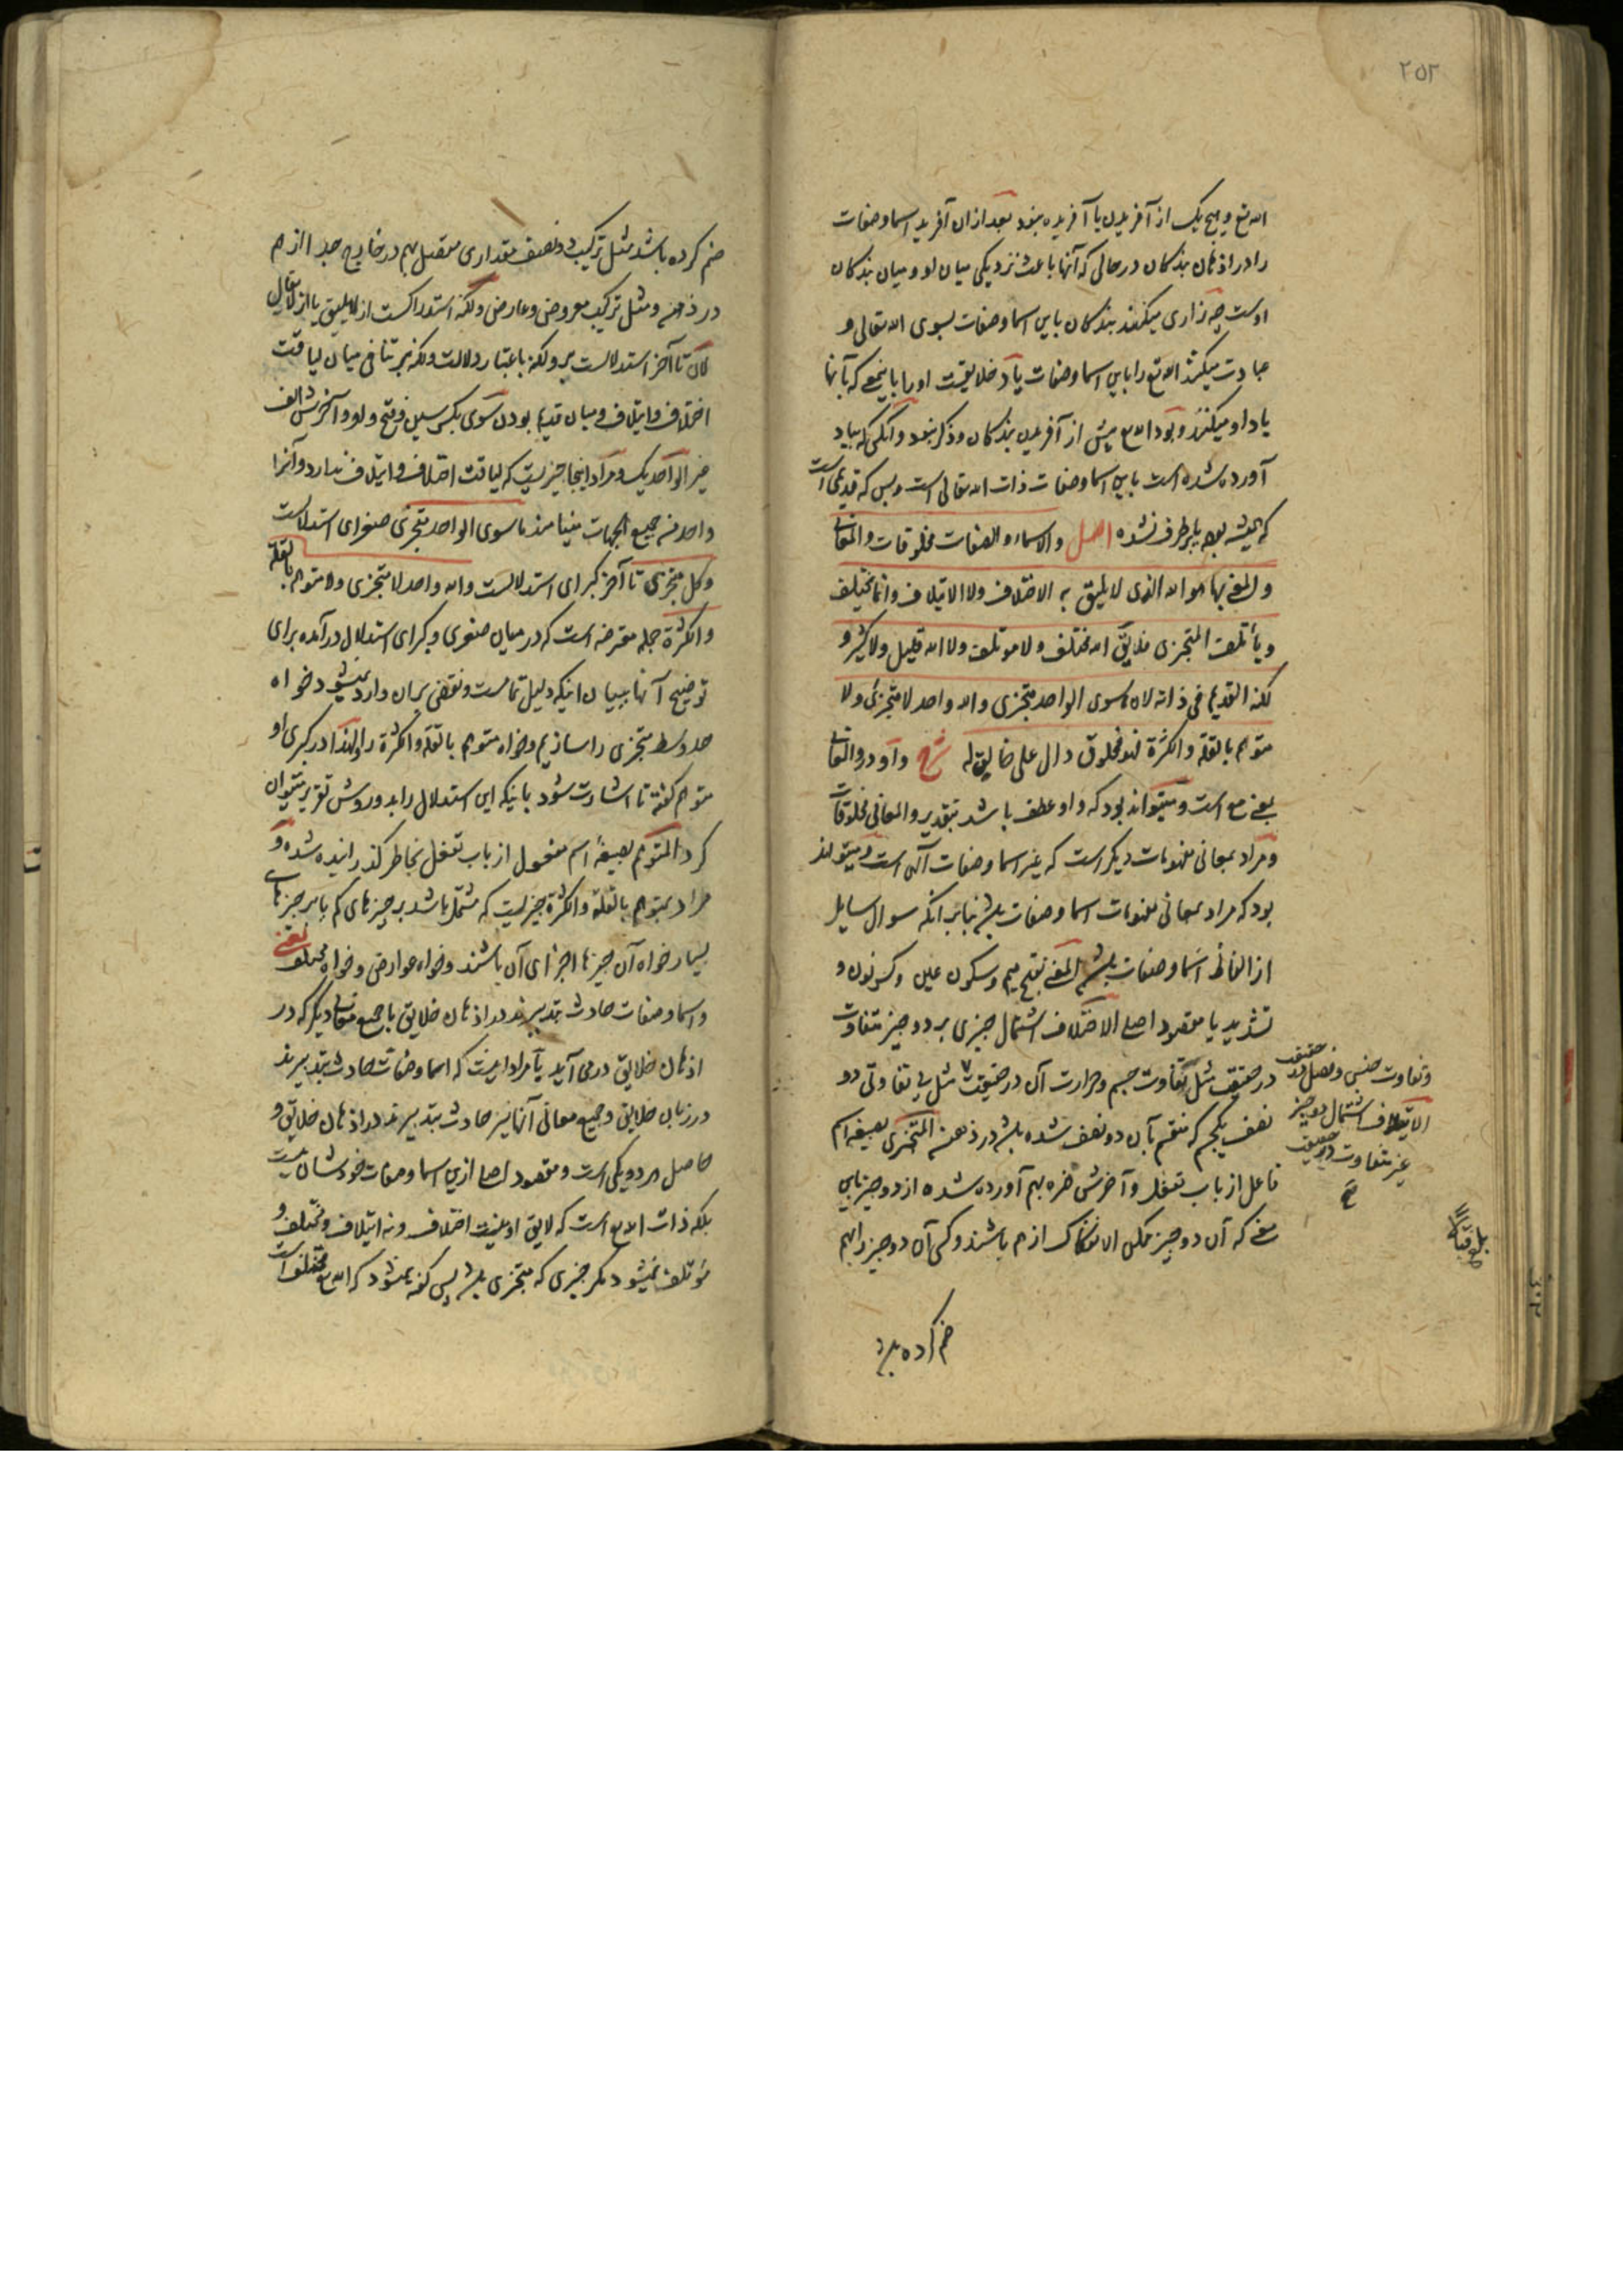 ۲۵۲
الله تع و هیچ یک از آفریدن یا آفریده نبود بعد از ان آفرید اسما و صفات
را در اذهان بندکان در حالی که آنها باعث نزدیکی میان او و میان بندکان
اوست چه زاری میکنند بندکان باین اسما و صفات بسوی الله تعالی و
عبادت میکنند الله تع را باین اسما و صفات یاد خلایقست او را باینمعنی که بآنها
یاد او میکنند و بود الله تع پیش از آفریدن بندکان و ذکر نبود و آنکسی که بیاد
آورده شده است باین اسما و صفات ذات الله تعالی است و بس که قدیمی است
که همیشه بوده یا برطرف نشده اصل والاسماء والصفات مخلوقات والمعانی
والمعنی بها هو الله الذی لا یلیق به الاختلاف ولا الایتلاف وانما یختلف
ویأتلف المتجزی فلا یق الله مختلف ولا موتلف ولا الله قلیل ولا کثیر و
لکنه القدیم فی ذاته لان ما سوی الواحد متجزی والله واحد لا متجزئ ولا
متوهم بالقلة والکثرة فهو مخلوق دال علی خالق له شرح واو در والمعانی
بمعنی مع است و میتواند بود که واو عطف باشد بتقدیر والمعانی مخلوقات
و مراد بمعانی مفهومات دیکر است که غیر اسما و صفات آلهی است و میتواند
بود که مراد بمعانی مفهومات اسما و صفات باشد بنابر آنکه سوال سایل
از الفاظ اسما و صفات باشد المعنی بفتح میم و سکون عین و کسر نون و
تشدید یا مقصود اصلی الاختلاف اشتمال چیزی بر دو چیز متفاوت
در حقیقت مثل تفاوت جسم و حرارت آن در حقیقت مثل بی تفاوتی دو
نصف یکجسم که منقسم بآن دو نصف شده باشد در ذهن المتجزی بصیغه اسم
فاعل از باب تفعل و آخرش همزه بهم آورده شده از دو چیز باین
معنی که آن دو چیز ممکن الانفکاک از هم باشند و کسی آن دو چیز را بهم
و تفاوت جنس و فصل در حقیقت
الایتلاف اشتمال دو چیز
غیر متفاوت در حقیقت
صح
بلغ قبالا
ضم کرده باشد
ضم کرده باشد مثل ترکیب دو نصف مقداری متصل بهم در خارج جدا از هم
در ذهن و مثل ترکیب معروض و عارض ولکنه استدراکست از لا یلیق یا از لا یقال
لان تا آخر استدلالست بر ولکنه باعتبار دلالت ولکنه بر تنافی میان لیاقت
اختلاف و ایتلاف و میان قدیم بودن سوی بکسر سین و فتح واو و آخرش الف
غیر الواحد یک و مراد اینجا چیزیست که لیاقت اختلاف و ایتلاف ندارد و آنرا
واحد من جمیع الجهات مینامند ما سوی الواحد متجزی صغرای استدلالست
وکل متجزی تا آخر کبرای استدلالست والله واحد لا متجزی ولا متوهم بالقلة
والکثرة جمله معترضه است که در میان صغری و کبرای استدلال در آمده برای
توضیح آنها ببیان اینکه دلیل تمامست و نقضی بر ان وارد نمیشود خواه
حد وسط متجزی را سازیم و خواه متوهم بالقلة والکثرة را و لهذا در کبری او
متوهم گفته تا اشارت شود باینکه این استدلال را بدو روش تقریر میتوان
کرد المتوهم بصیغهٔ اسم مفعول از باب تفعل بخاطر گذرانیده شده و
مراد بمتوهم بالقلة والکثرة چیزیست که مشتمل باشد بر چیزهای کم یا بر چیزهای
بسیار خواه آن چیزها اجزای آن باشند و خواه عوارض و خواه مختلف یعنی
و اسما و صفات حادث بتدبیرند در اذهان خلایق با جمیع معانی دیکر که در
اذهان خلایق در می آید یا مراد اینست که اسما و صفات حادث بتدبیرند
در زبان خلایق و جمیع معانی آنها نیز حادث بتدبیرند در اذهان خلایق و
حاصل هر دو یکی است و مقصود اصلی ازین اسما و صفات خودشان نیست
بلکه ذات الله تع است که لایق او نیست اختلاف و نه ایتلاف و مختلف و
مؤتلف نمیشود مکر چیزی که متجزی باشد پس گفته نمیشود که الله تع مختلف است